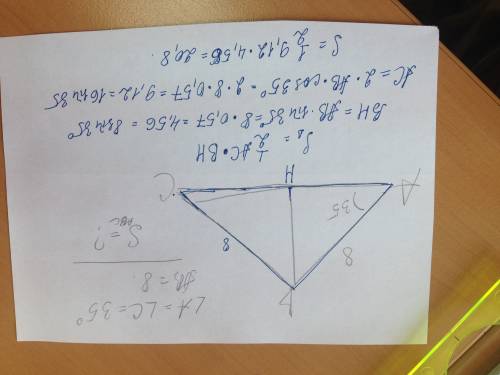 ∠A = ∠C = 35°
AB = 8.
S_ABC = ?
B
8 8
35
A H C
S_Δ = 1/2 AC · BH
BH = AB · sin 35° = 8 · 0,57 = 4,56 = 8 sin 35°
AC = 2 · AB · cos 35° = 2 · 8 · 0,57 = 9,12 = 16 sin 35
S = 1/2 9,12 · 4,56 = 20,8.